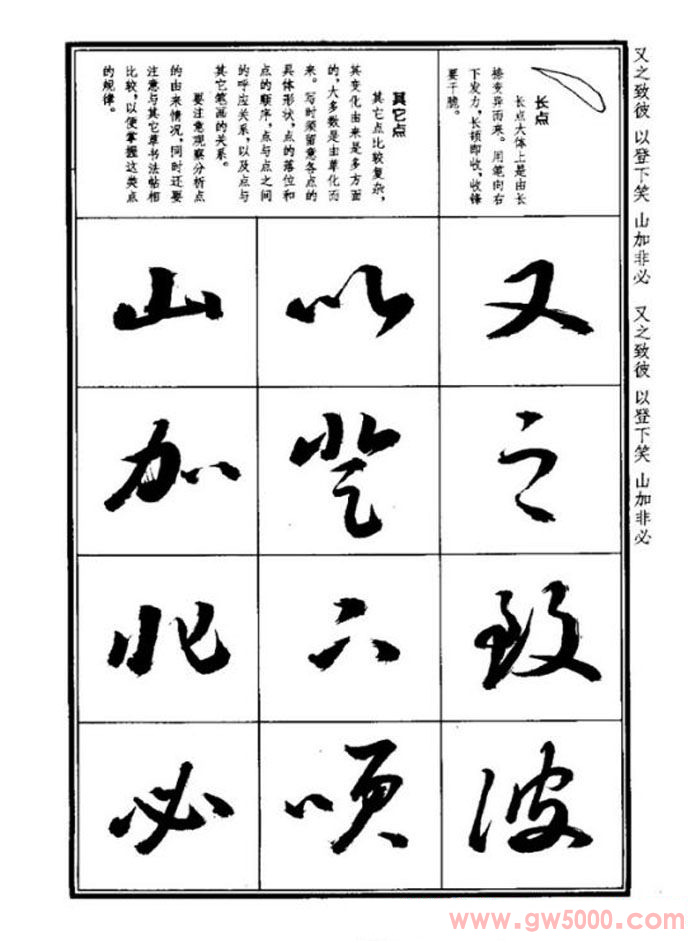 又之致彼 以登下笑 山加非必 又之致彼 以登下笑 山加非必
长点
长点大体上是由长
捺变异而来。用笔向右
下发力，长顿即收，收锋
要干脆。
其它点
其它点比较复杂，
其变化由来是多方面
的，大多数是由草化而
来。写时须留意各点的
具体形状，点的落位和
点的顺序，点与点之间
的呼应关系，以及点与
其它笔画的关系。
要注意观察分析点
的由来情况，同时还要
注意与其它草书法帖相
比较，以便掌握这类点
的规律。
又之致彼
以登下笑
山加非必
www.gw5000.com